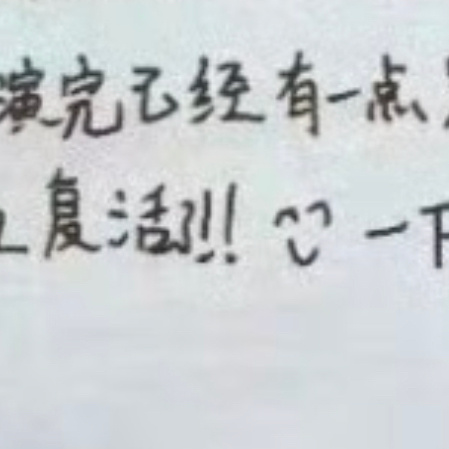 演完已经有一点
复活!!! 一下